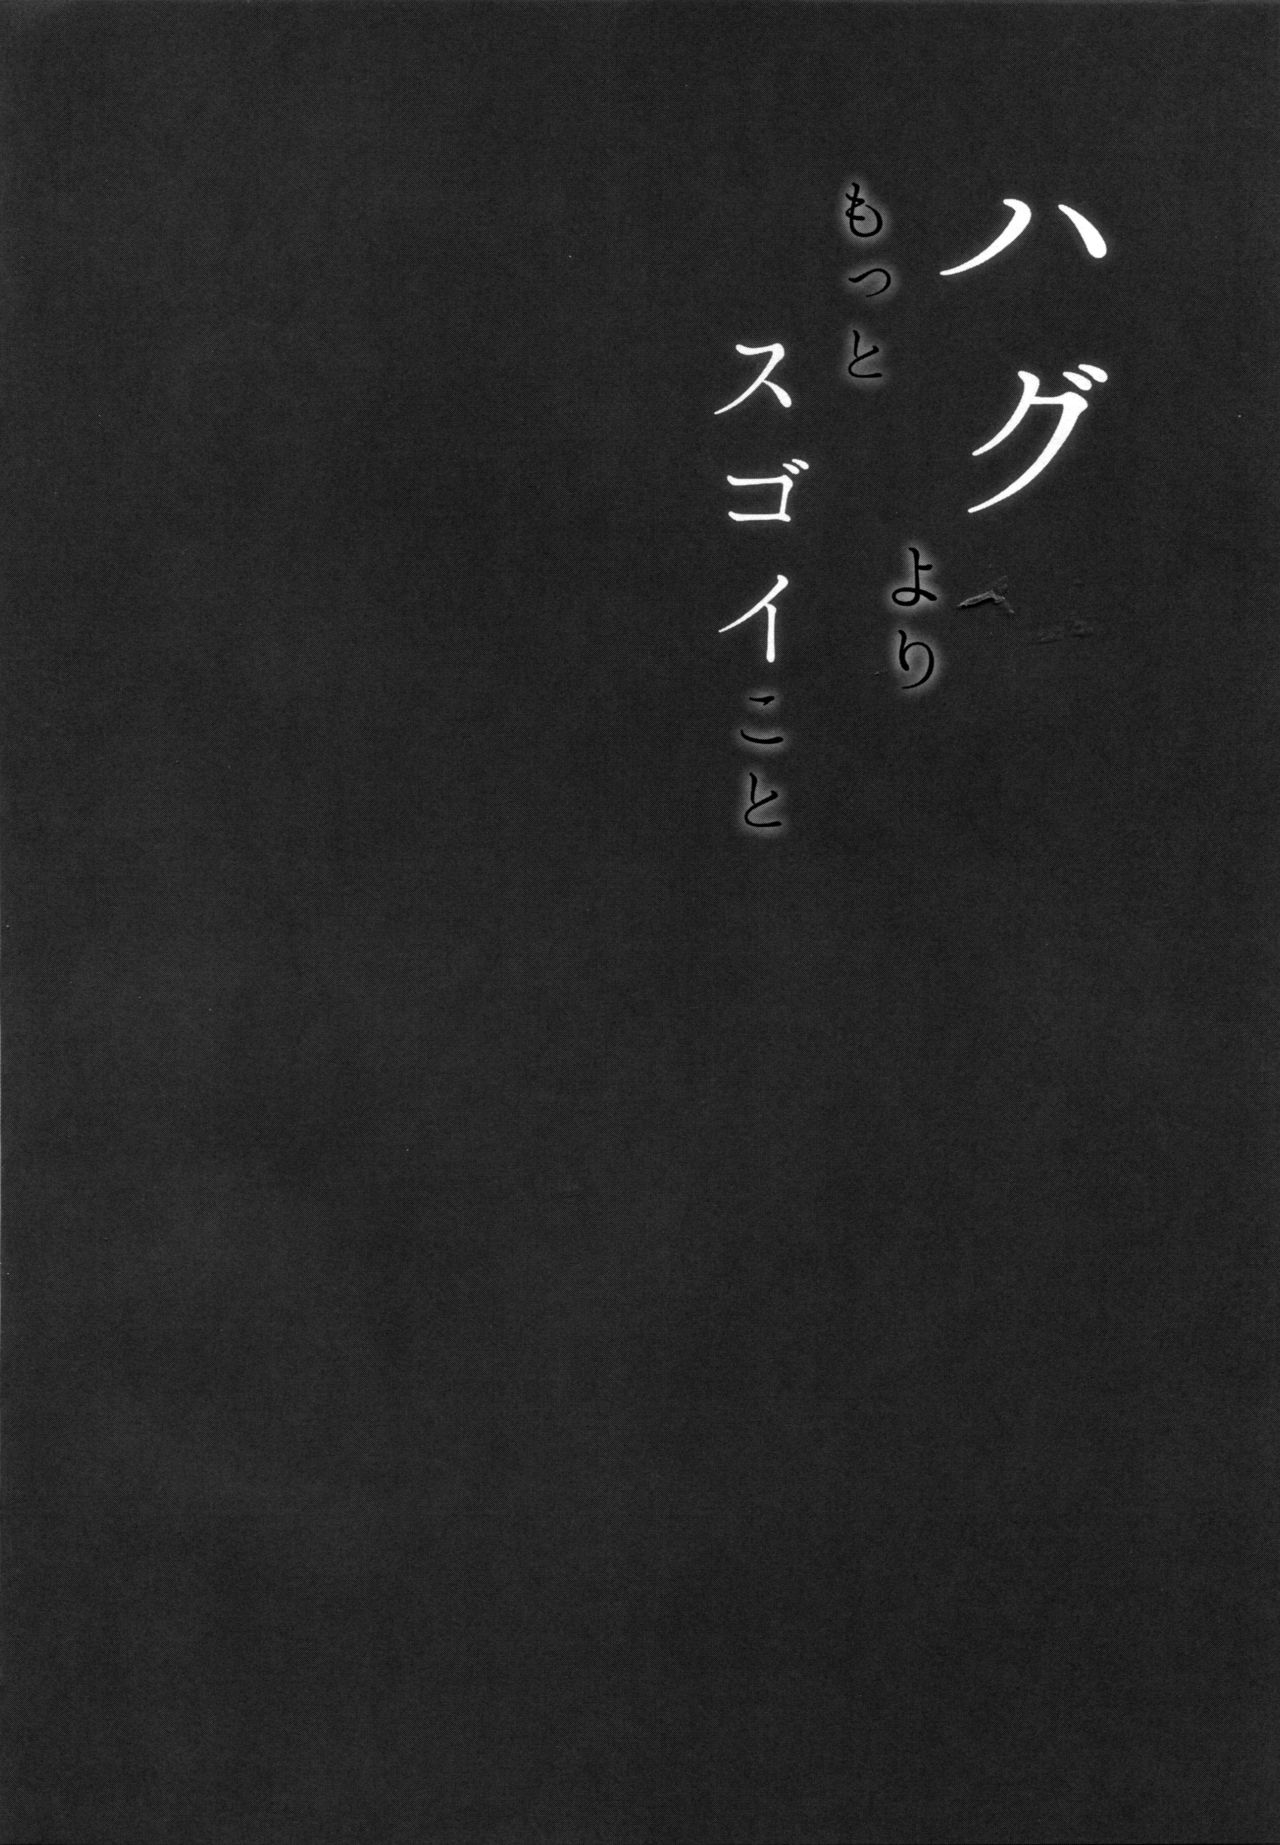 ハグより
もっと
スゴイこと